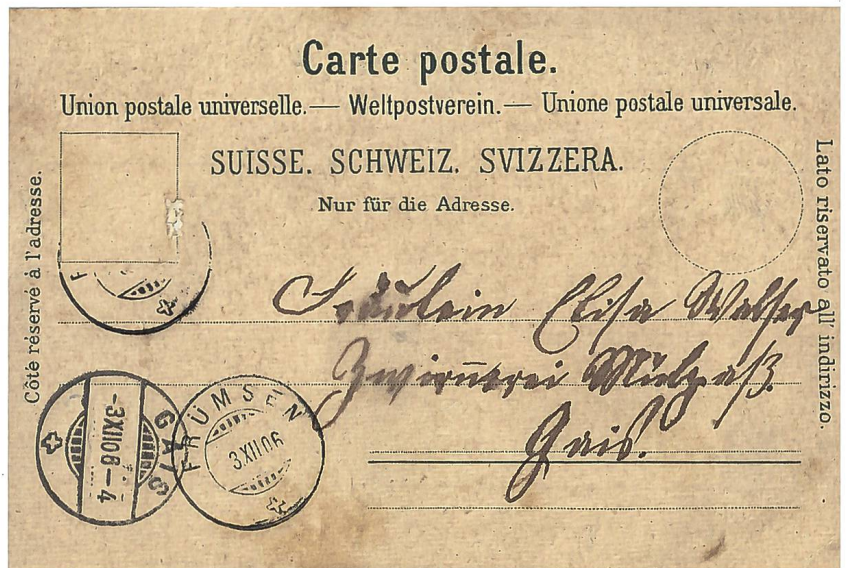 Carte postale.
Union postale universelle. — Weltpostverein. — Unione postale universale.
SUISSE. SCHWEIZ. SVIZZERA.
Nur für die Adresse.
Côté réservé à l'adresse.
Lato riservato all' indirizzo.
F
Fräulein Elisa Walser
Zwirnerei
Gais.
GAIS
-3XII06-4
FRÜMSEN
3XII06